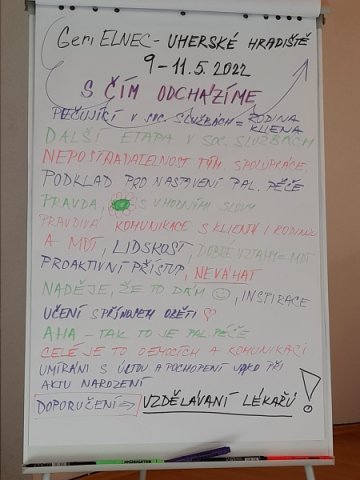 Geri ELNEC - UHERSKÉ HRADIŠTĚ
9 - 11.5. 2022
S ČÍM ODCHÁZÍME
PEČUJÍCÍ V SOC. SLUŽBÁCH = RODINA KLIENA
DALŠÍ ETAPA V SOC. SLUŽBÁCH
NEPOSTRADATELNOST TÝM. SPOLUPRÁCE.
PODKLAD PRO NASTAVENÍ PAL. PÉČE
PRAVDA, S VHODNÝMI SLOVY
PRAVDIVÁ KOMUNIKACE S KLIENTY I RODINOU
A MDT, LIDSKOST, DOBRÉ VZTAHY = MDT
PROAKTIVNÍ PŘÍSTUP, NEVÁHAT
NADĚJE, ŽE TO DÁM, INSPIRACE
UČENÍ SPOJENO
AHA - TAK TO JE PAL. PÉČE
CELÉ JE TO O EMOCÍCH A KOMUNIKACI
UMÍRÁNÍ S ÚCTOU A POCHOPENÍ JAKO PŘI
AKTU NAROZENÍ
DOPORUČENÍ ⇒ VZDĚLÁVANÍ LÉKAŘŮ !